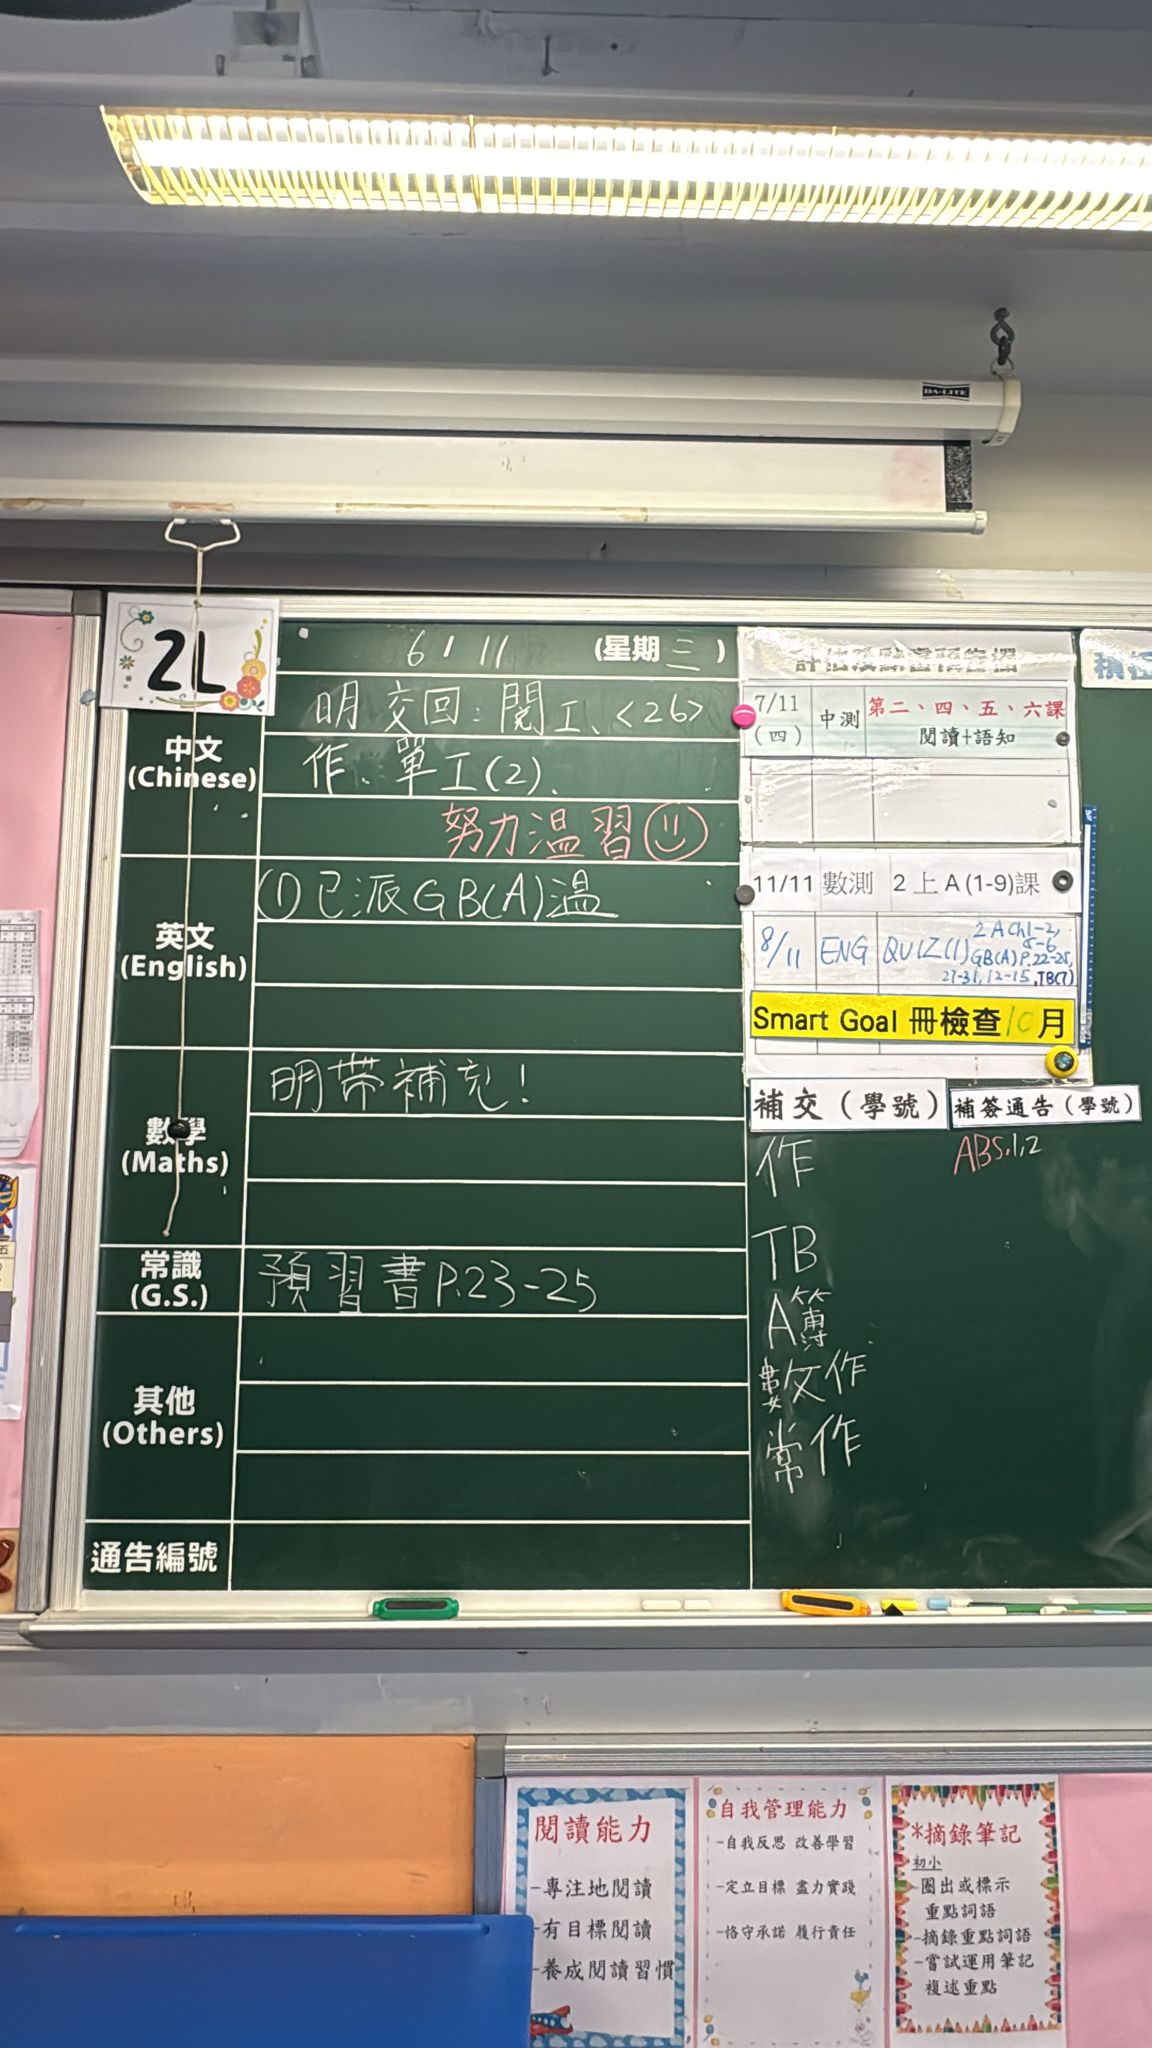 DA-LITE
2L
6/11 (星期三)
中文
(Chinese)
明交回：閱工、<26>
作、單工(2)、
努力溫習
英文
(English)
(1)已派GB(A)溫
數學
(Maths)
明帶補充！
常識
(G.S.)
預習書P.23-25
其他
(Others)
通告編號
7/11
(四)
中測
第二、四、五、六課
閱讀+語知
11/11 數測 2上A(1-9)課
8/11 ENG QUIZ(1)
2A Ch1-2,
5-6
GB(A) P.22-25,
27-31, 12-15, TB(7)
Smart Goal 冊檢查10月
補交（學號）
補簽通告（學號）
作
ABS.1,2
TB
A簿
數作
常作
閱讀能力
-專注地閱讀
-有目標閱讀
-養成閱讀習慣
自我管理能力
-自我反思 改善學習
-定立目標 盡力實踐
-恪守承諾 履行責任
*摘錄筆記
初小
-圈出或標示
重點詞語
-摘錄重點詞語
-嘗試運用筆記
複述重點